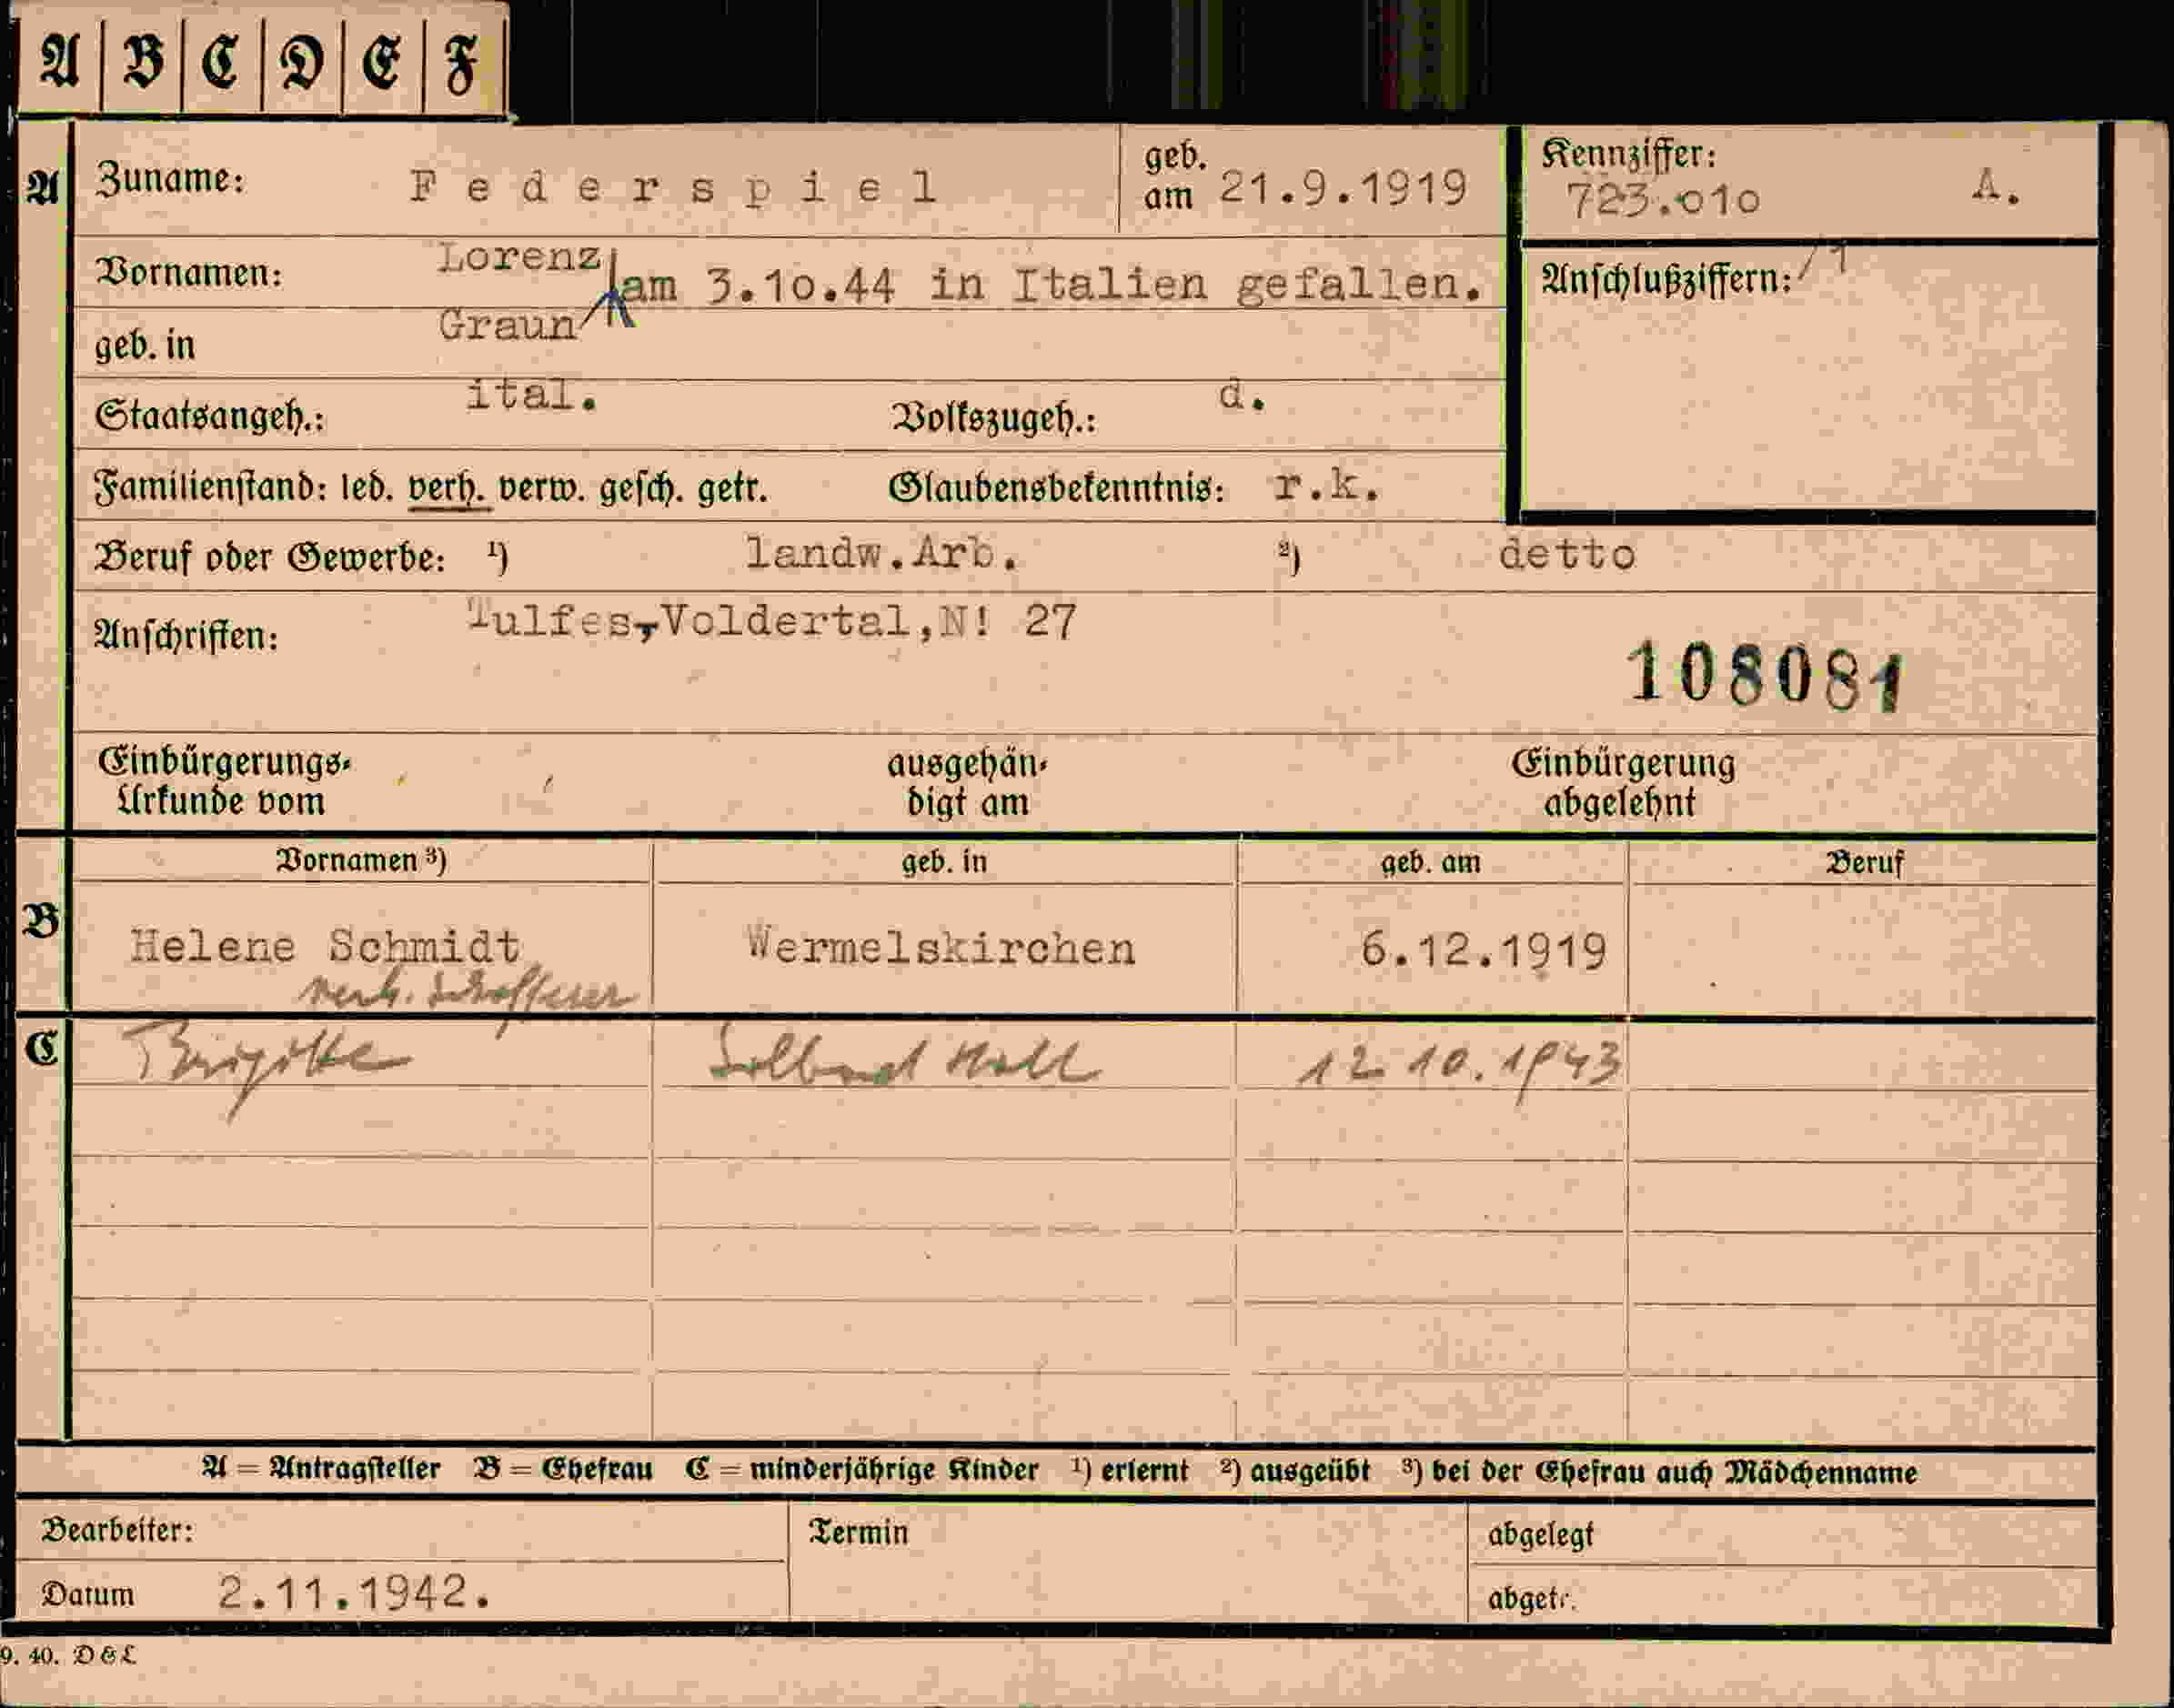 A B C D E F
A Zuname: Federspiel geb. am 21.9.1919 Kennziffer: 723.010 A.
Vornamen: Lorenz am 3.10.44 in Italien gefallen. Anschlußziffern: / 1
geb. in Graun
Staatsangeh.: ital. Volkszugeh.: d.
Familienstand: led. verh. verw. gesch. getr. Glaubensbekenntnis: r.k.
Beruf oder Gewerbe: 1) landw.Arb. 2) detto
Anschriften: Tulfes,Voldertal,N! 27
108081
Einbürgerungs-Urkunde vom ausgehändigt am Einbürgerung abgelehnt
Vornamen 3) geb. in geb. am Beruf
B Helene Schmidt Wermelskirchen 6.12.1919
verh.
C Brigitte Solbad Hall 12 10. 1943
A = Antragsteller B = Ehefrau C = minderjährige Kinder 1) erlernt 2) ausgeübt 3) bei der Ehefrau auch Mädchenname
Bearbeiter: Termin abgelegt
Datum 2.11.1942. abgetr.
9. 40. D & L